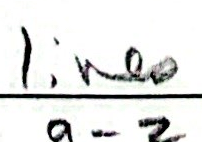 lines
a-z